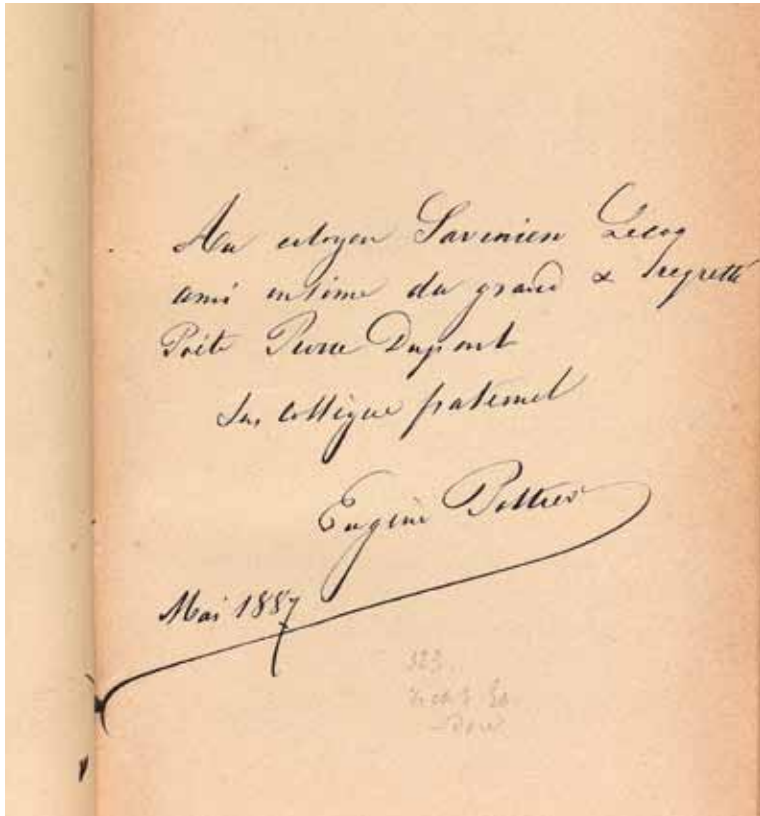 Au citoyen Savinien Lecoq
ami intime du grand & regretté
Poète Pierre Dupont
Son collègue fraternel
Eugène Pottier
Mai 1887
323